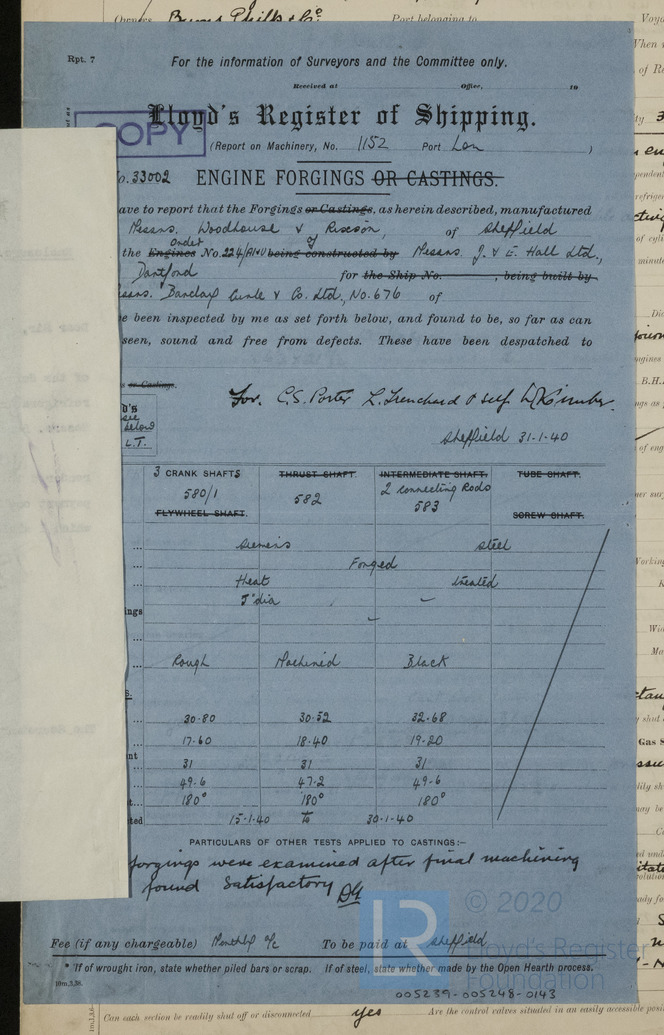 Owners Burns Philp & Co Port belonging to Voya
Rpt. 7
For the information of Surveyors and the Committee only.
Received at Office, 19
Lloyd's Register of Shipping.
COPY
(Report on Machinery, No. 1152 Port Lon )
o. 33002 ENGINE FORGINGS OR CASTINGS.
ave to report that the Forgings or Castings, as herein described, manufactured
Messrs. Woodhouse & of Sheffield
order of
the Engines No. 224/ being constructed by Messrs. J. & E. Hall Ltd.,
Dartford for the Ship No. , being built by
Messrs. Barclay Curle & Co. Ltd., No. 676 of
e been inspected by me as set forth below, and found to be, so far as can
seen, sound and free from defects. These have been despatched to
or Castings.
For. C.S. Porter L. Trenchard & self
d's
see
below
L.T.
Sheffield 31-1-40
3 CRANK SHAFTS THRUST SHAFT. INTERMEDIATE SHAFT. TUBE SHAFT.
580/1 582 2 connecting Rods
583
FLYWHEEL SHAFT. SCREW SHAFT.
Siemens Steel
Forged
Heat treated
5" dia –
ings –
Rough Machined Black
30-80 30-52 32-68
17-60 18-40 19-20
nt 31 31 31
49-6 47-2 49-6
180° 180° 180°
ted 15-1-40 to 30-1-40
PARTICULARS OF OTHER TESTS APPLIED TO CASTINGS:–
forgings were examined after final machining
found satisfactory
LR © 2020
Lloyd's Register
Foundation
Fee (if any chargeable) Monthly a/c To be paid at Sheffield
* If of wrought iron, state whether piled bars or scrap. If of steel, state whether made by the Open Hearth process.
10m.3,38.
005239-005248-0143
Can each section be readily shut off or disconnected yes Are the control valves situated in an easily accessible posi